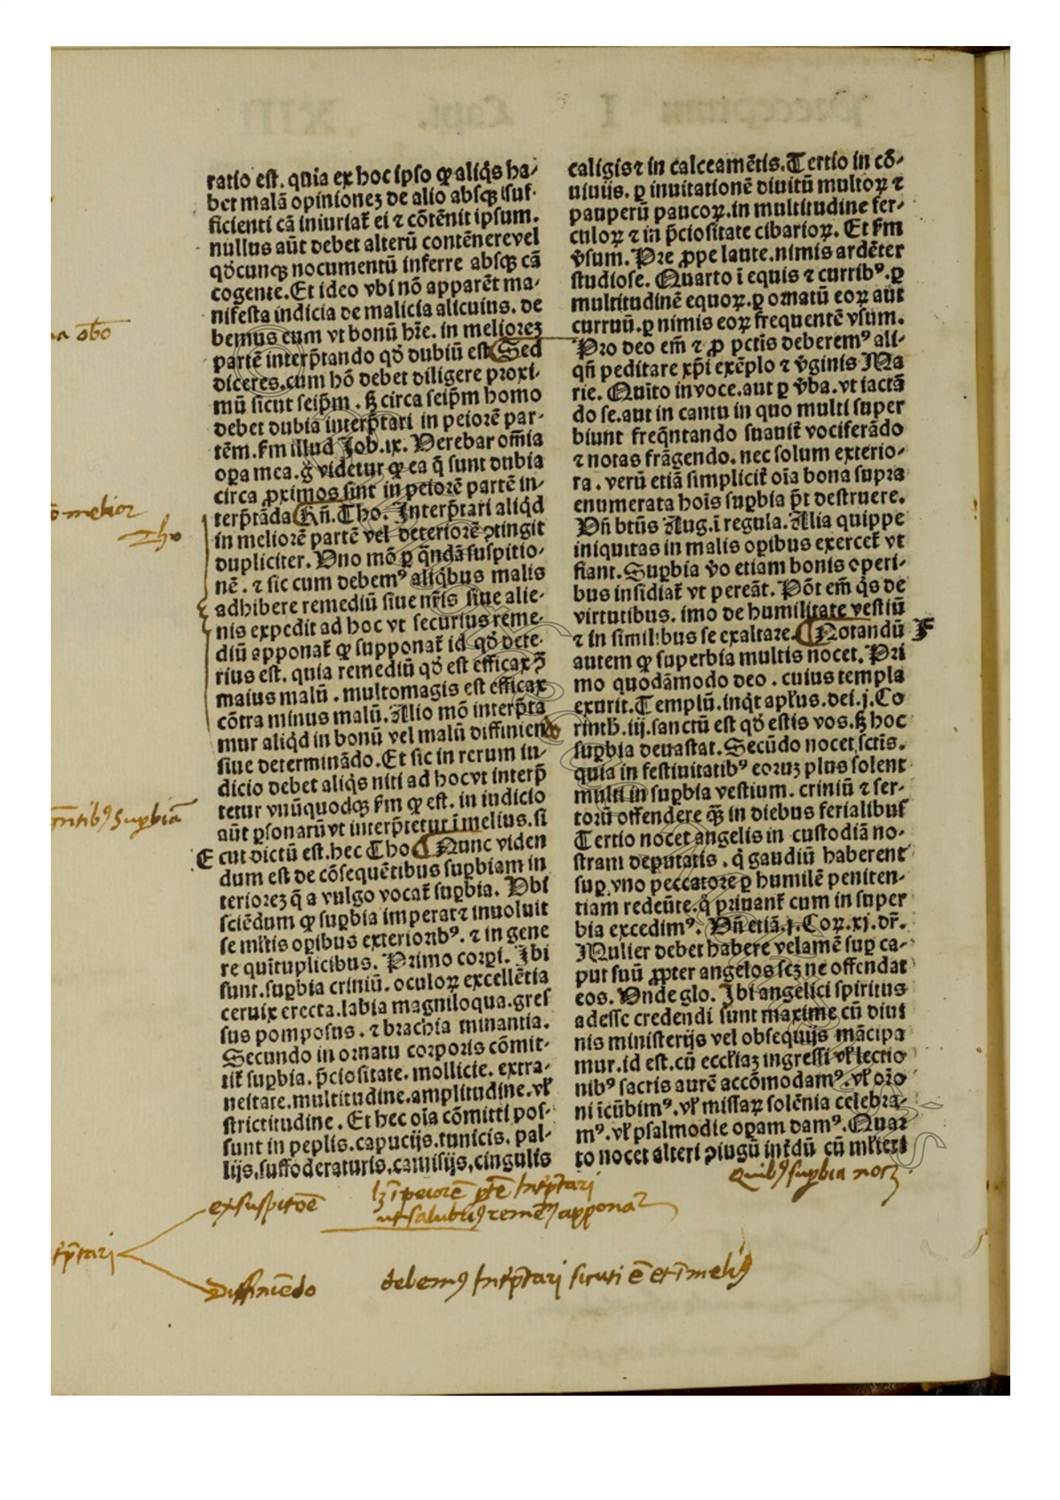 ratio est. quia ex hoc ipso ꝙ aliq̄s ha-
bet malā opinionez de alio absqꝫ isuf-
ficienti cā iniuriať ei ⁊ cōtēnit ipsum.
nullus aūt debet alterū contēnere vel
qđcunqꝫ nocumentū inferre absqꝫ cā
cogente. Et ideo vbi nō apparēt ma-
nifesta indicia de malicia alicuius. de
bemus eum vt bonū hr̄e. in meliorez
partē interp̄tando qđ dubiū est Sed
diceres. cum hō debet diligere proxi-
mū sicut seip̄m. sꝫ circa seip̄m homo
debet dubia interp̄tari in peiorē par-
tēm. fm illud Job. ix. Verebar om̄ia
oꝑa mea. ḡ videtur ꝙ ea q̄ sunt dubia
circa ꝓximos sint in peiorē partē in-
terp̄tāda Rn̄. Tho. Interp̄tari aliqd
in meliorē partē vel deteriorē ↄtingit
dupliciter. Vno mō ꝑ q̄ndā suspitio-
nē. ⁊ sic cum debemꝰ aliq̄bus malis
adhibere remediū siue nr̄is siue alie-
nis expedit ad hoc vt securius reme-
diū apponať ꝙ supponať id qđ dete-
rius est. quia remediū qđ est efficax ꝯ̄
maius malū. multomagis est efficax
cōtra minus malū. Alio mō interp̄ta
mur aliqd in bonū vel malū diffiniendo
siue determinādo. Et sic in rerum iu-
dicio debet aliq̄s niti ad hoc vt interp̄
tetur vnūquodqꝫ fm ꝙ est. in iudicio
aūt ꝑsonarū vt interp̄tetur ī melius. si
E cut dictū est. hec Tho Nunc viden
dum est de cōsequētibus suꝑbiam in
teriorez q̄ a vulgo vocať suꝑbia. Vbi
sciēdum ꝙ suꝑbia imperat ⁊ inuoluit
se ml̄tis oꝑibus exterioribꝰ. ⁊ in gene
re quītuplicibus. Primo corꝑi. Ibi
sunt. suꝑbia criniū. oculoꝝ excellētia
ceruix erecta. labia magniloqua. gres
sus pomposus. ⁊ brachia minantia.
Secundo in ornatu corporis cōmit-
tiť suꝑbia. p̄ciositate. mollicie. extra-
neitate. multitudine. amplitudine. vł
strictitudine. Et hec oīa cōmitti pos-
sunt in peplis. capucijs. tunicis. pal-
lijs, suffoderaturis, camisijs, cingulis
caligis ⁊ in calceamētis. Tertio in cō-
uiuijs. ꝑ inuitationē diuitū multoꝝ ⁊
pauperū paucoꝝ. in multitudine fer-
culoꝝ ⁊ in p̄ciositate cibarioꝝ. Et fm
v̄sum. Pre ꝓpe laute. nimis ardēter
studiose. Quarto ī equis ⁊ curribꝰ. ꝑ
multitudinē equoꝝ. ꝑ ornatū eoꝝ aut
curruū. ꝑ nimis eoꝝ frequentē vsum.
Pro deo em̄ ⁊ ꝓ pctīs deberemꝰ ali-
qn̄ peditare xp̄i exēplo ⁊ v̄ginis Ma
rie. Quīto in voce. aut ꝑ v̄ba. vt iactā
do se. aut in cantu in quo multi super
biunt freq̄ntando suauiť vociferādo
⁊ notas frāgendo. nec solum exterio-
ra. verū etiā simpliciť oīa bona supra
enumerata hoīs suꝑbia p̄t destruere.
Vn̄ btūs Aug. ī regula. Alia quippe
iniquitas in malis oꝑibus exerceť vt
fiant. Suꝑbia v̄o etiam bonis operi-
bus insidiať vt pereāt. Pōt em̄ q̄s de
virtutibus. imo de humilitate vestiū
⁊ in similibus se exaltare. Notandū F
autem ꝙ superbia multis nocet. Pri
mo quodāmodo deo. cuius templa
exurit. Templū. inq̄t apłus. dei. j. Co
rinth. iij. sanctū est qđ estis vos. sꝫ hoc
suꝑbia deuastat. Secūdo nocet sctīs.
quia in festiuitatibꝰ eoruꝫ plus solent
multi in suꝑbia vestium. criniū ⁊ ser-
torū offendere qꝫ̄ in diebus ferialibus
Tertio nocet angelis in custodiā no-
stram deputatis. q̄ gaudiū haberent
suꝑ vno peccatore ꝑ humilē peniten-
tiam redeūte. q̄ priuanť cum in super
bia excedimꝰ. Vn̄ etiā. j. Coꝝ. xj. dr̄.
Mulier debet habere velamē suꝑ ca-
put suū ꝓpter angelos scꝫ ne offendat
eos. Vnde glo. Ibi angelici spiritus
adesse credendi sunt maxime cū diui
nis ministerijs vel obsequijs mācipa
mur. id est. cū eccl̄iaꝫ ingressi vł lectio
nibꝰ sacris aurē accōmodamꝰ. vł or̄o
ni īcūbimꝰ. vł missaꝝ solēnia celebra-
mꝰ. vł psalmodie oꝑam damꝰ. Quar
to nocet alteri ↄiugū int̄dū cū ml̄ieri
melior
Tho
suꝑbiā
quibꝰ suꝑbia nocꝫ
ex suspitōē
lꝫ ī peiorē ptē Int̄p̄tari
vt salubriꝰ remeꝫ apponať
p̄tari
Diffiniēdo
debemꝰ Int̄p̄tari sicuti ē et ī meliꝰ